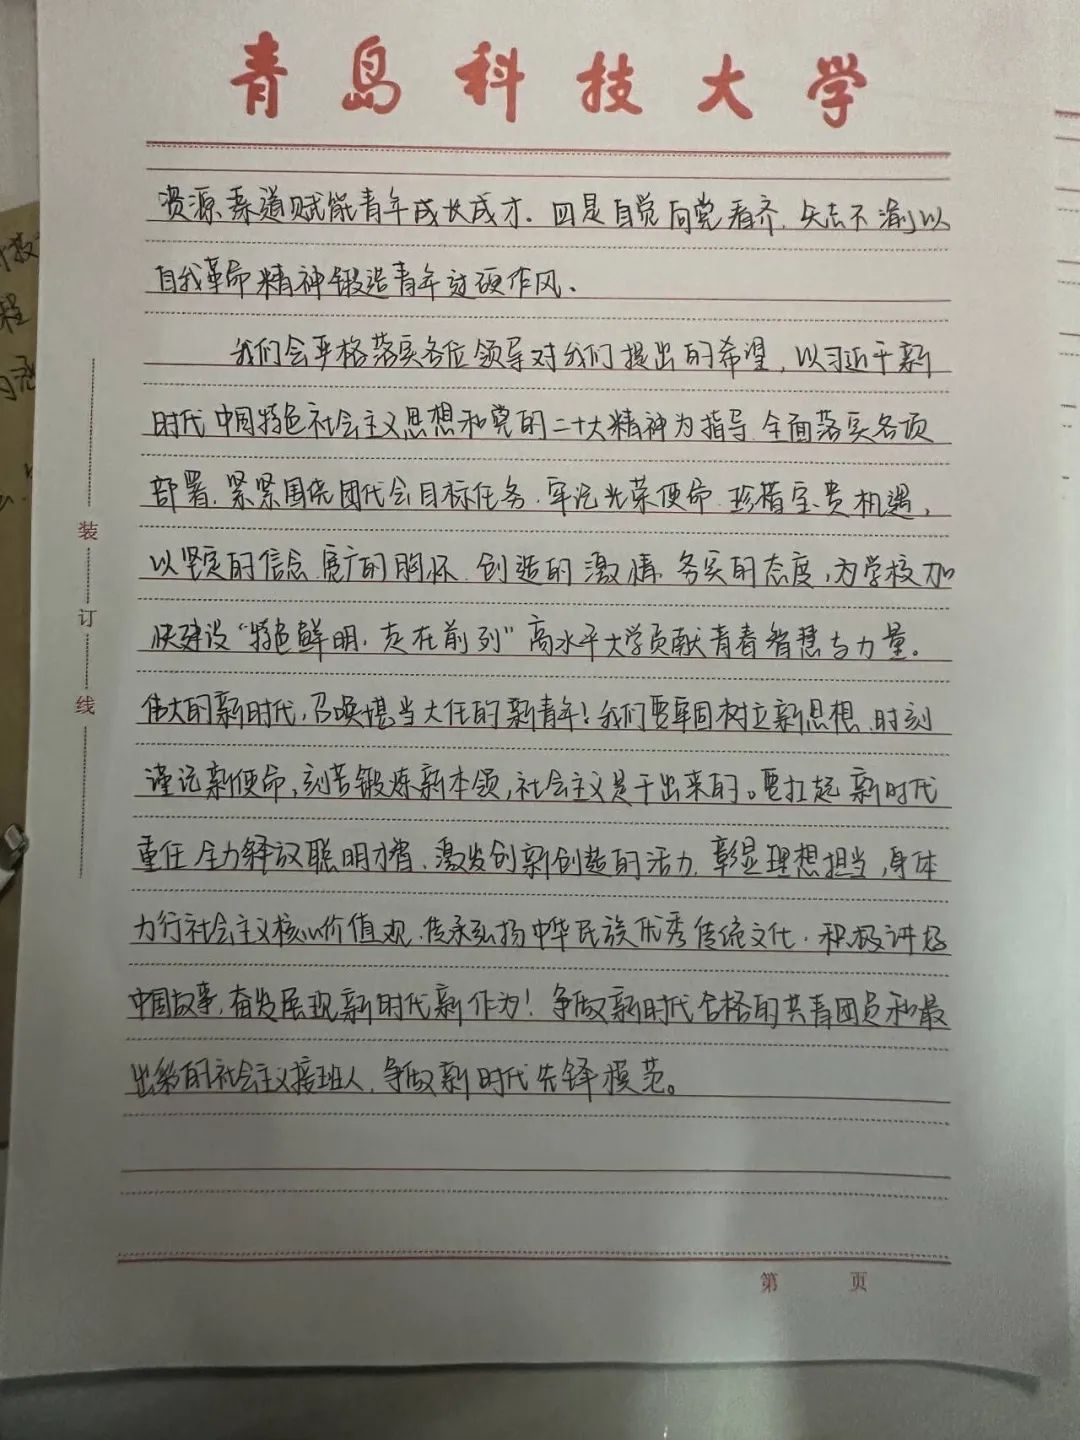 青岛科技大学
资源渠道赋能青年成长成才. 四是自觉向党看齐, 矢志不渝以
自我革命精神锻造青年过硬作风、
我们会严格落实各位领导对我们提出的希望, 以习近平新
时代中国特色社会主义思想和党的二十大精神为指导, 全面落实各项
部署, 紧紧围绕团代会目标任务, 牢记光荣使命, 珍惜宝贵机遇,
以坚定的信念, 宽广的胸怀, 创造的激情, 务实的态度, 为学校加
快建设“特色鲜明, 走在前列”高水平大学贡献青春智慧与力量。
伟大的新时代, 召唤堪当大任的新青年! 我们要牢固树立新思想, 时刻
谨记新使命, 刻苦锻炼新本领, 社会主义是干出来的。要扛起新时代
重任, 全力释放聪明才智, 激发创新创造的活力, 彰显理想担当, 身体
力行社会主义核心价值观, 传承弘扬中华民族优秀传统文化, 积极讲好
中国故事, 奋发展现新时代新作为! 争做新时代合格的共青团员和最
出彩的社会主义接班人, 争做新时代先锋模范。
装
订
线
第 页